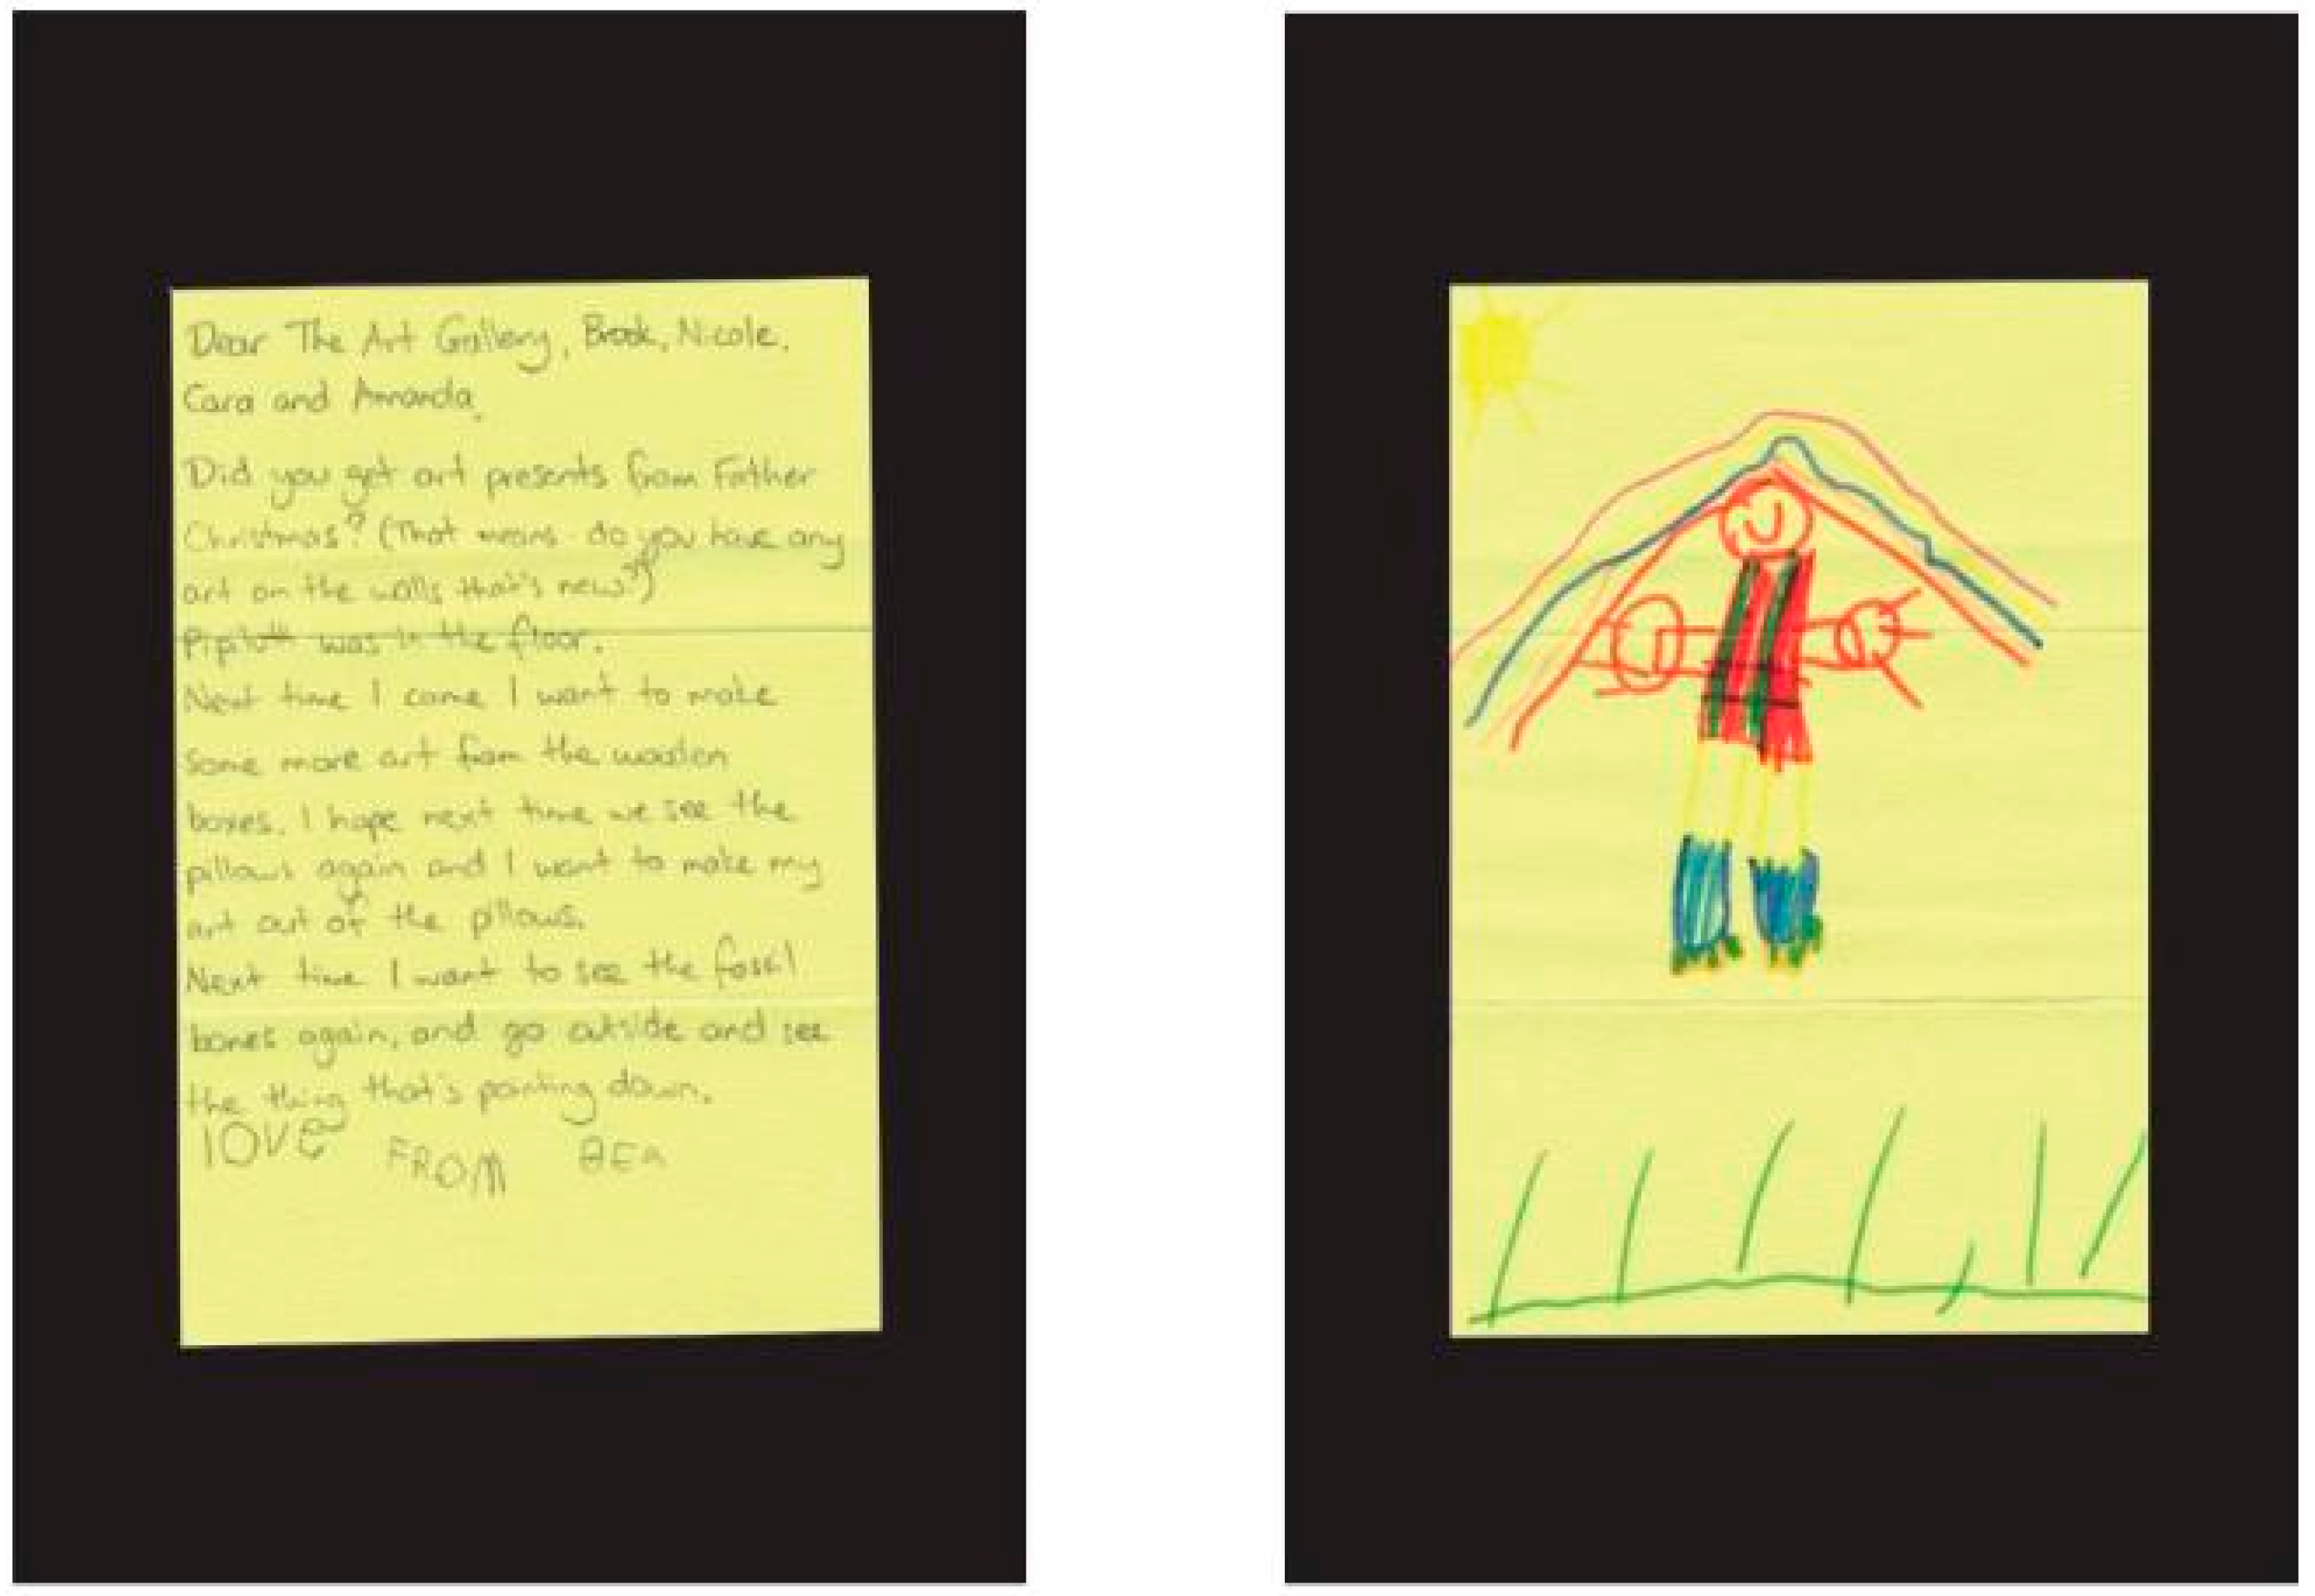 Dear The Art Gallery, Brook, Nicole,
Cara and Amanda,
Did you get art presents from Father
Christmas? (That means do you have any
art on the walls that's new?)
was in the floor.
Next time I come I want to make
some more art from the wooden
boxes. I hope next time we see the
pillows again and I want to make my
art out of the pillows.
Next time I want to see the fossil
bones again, and go outside and see
the thing that's pointing down.
lOVE FROM BEA